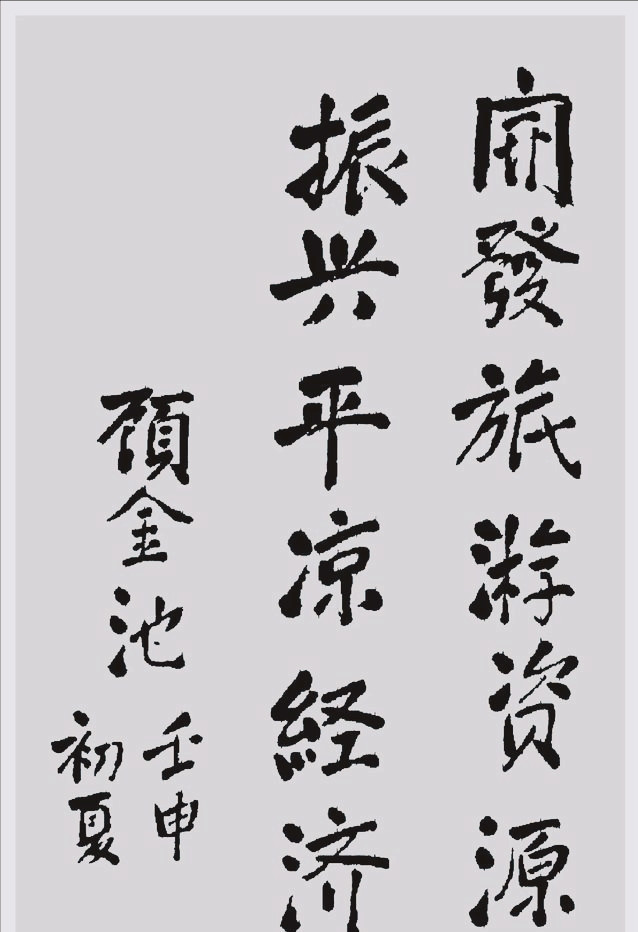 開發旅游资源
振兴平凉経济
顾金池
壬申
初夏